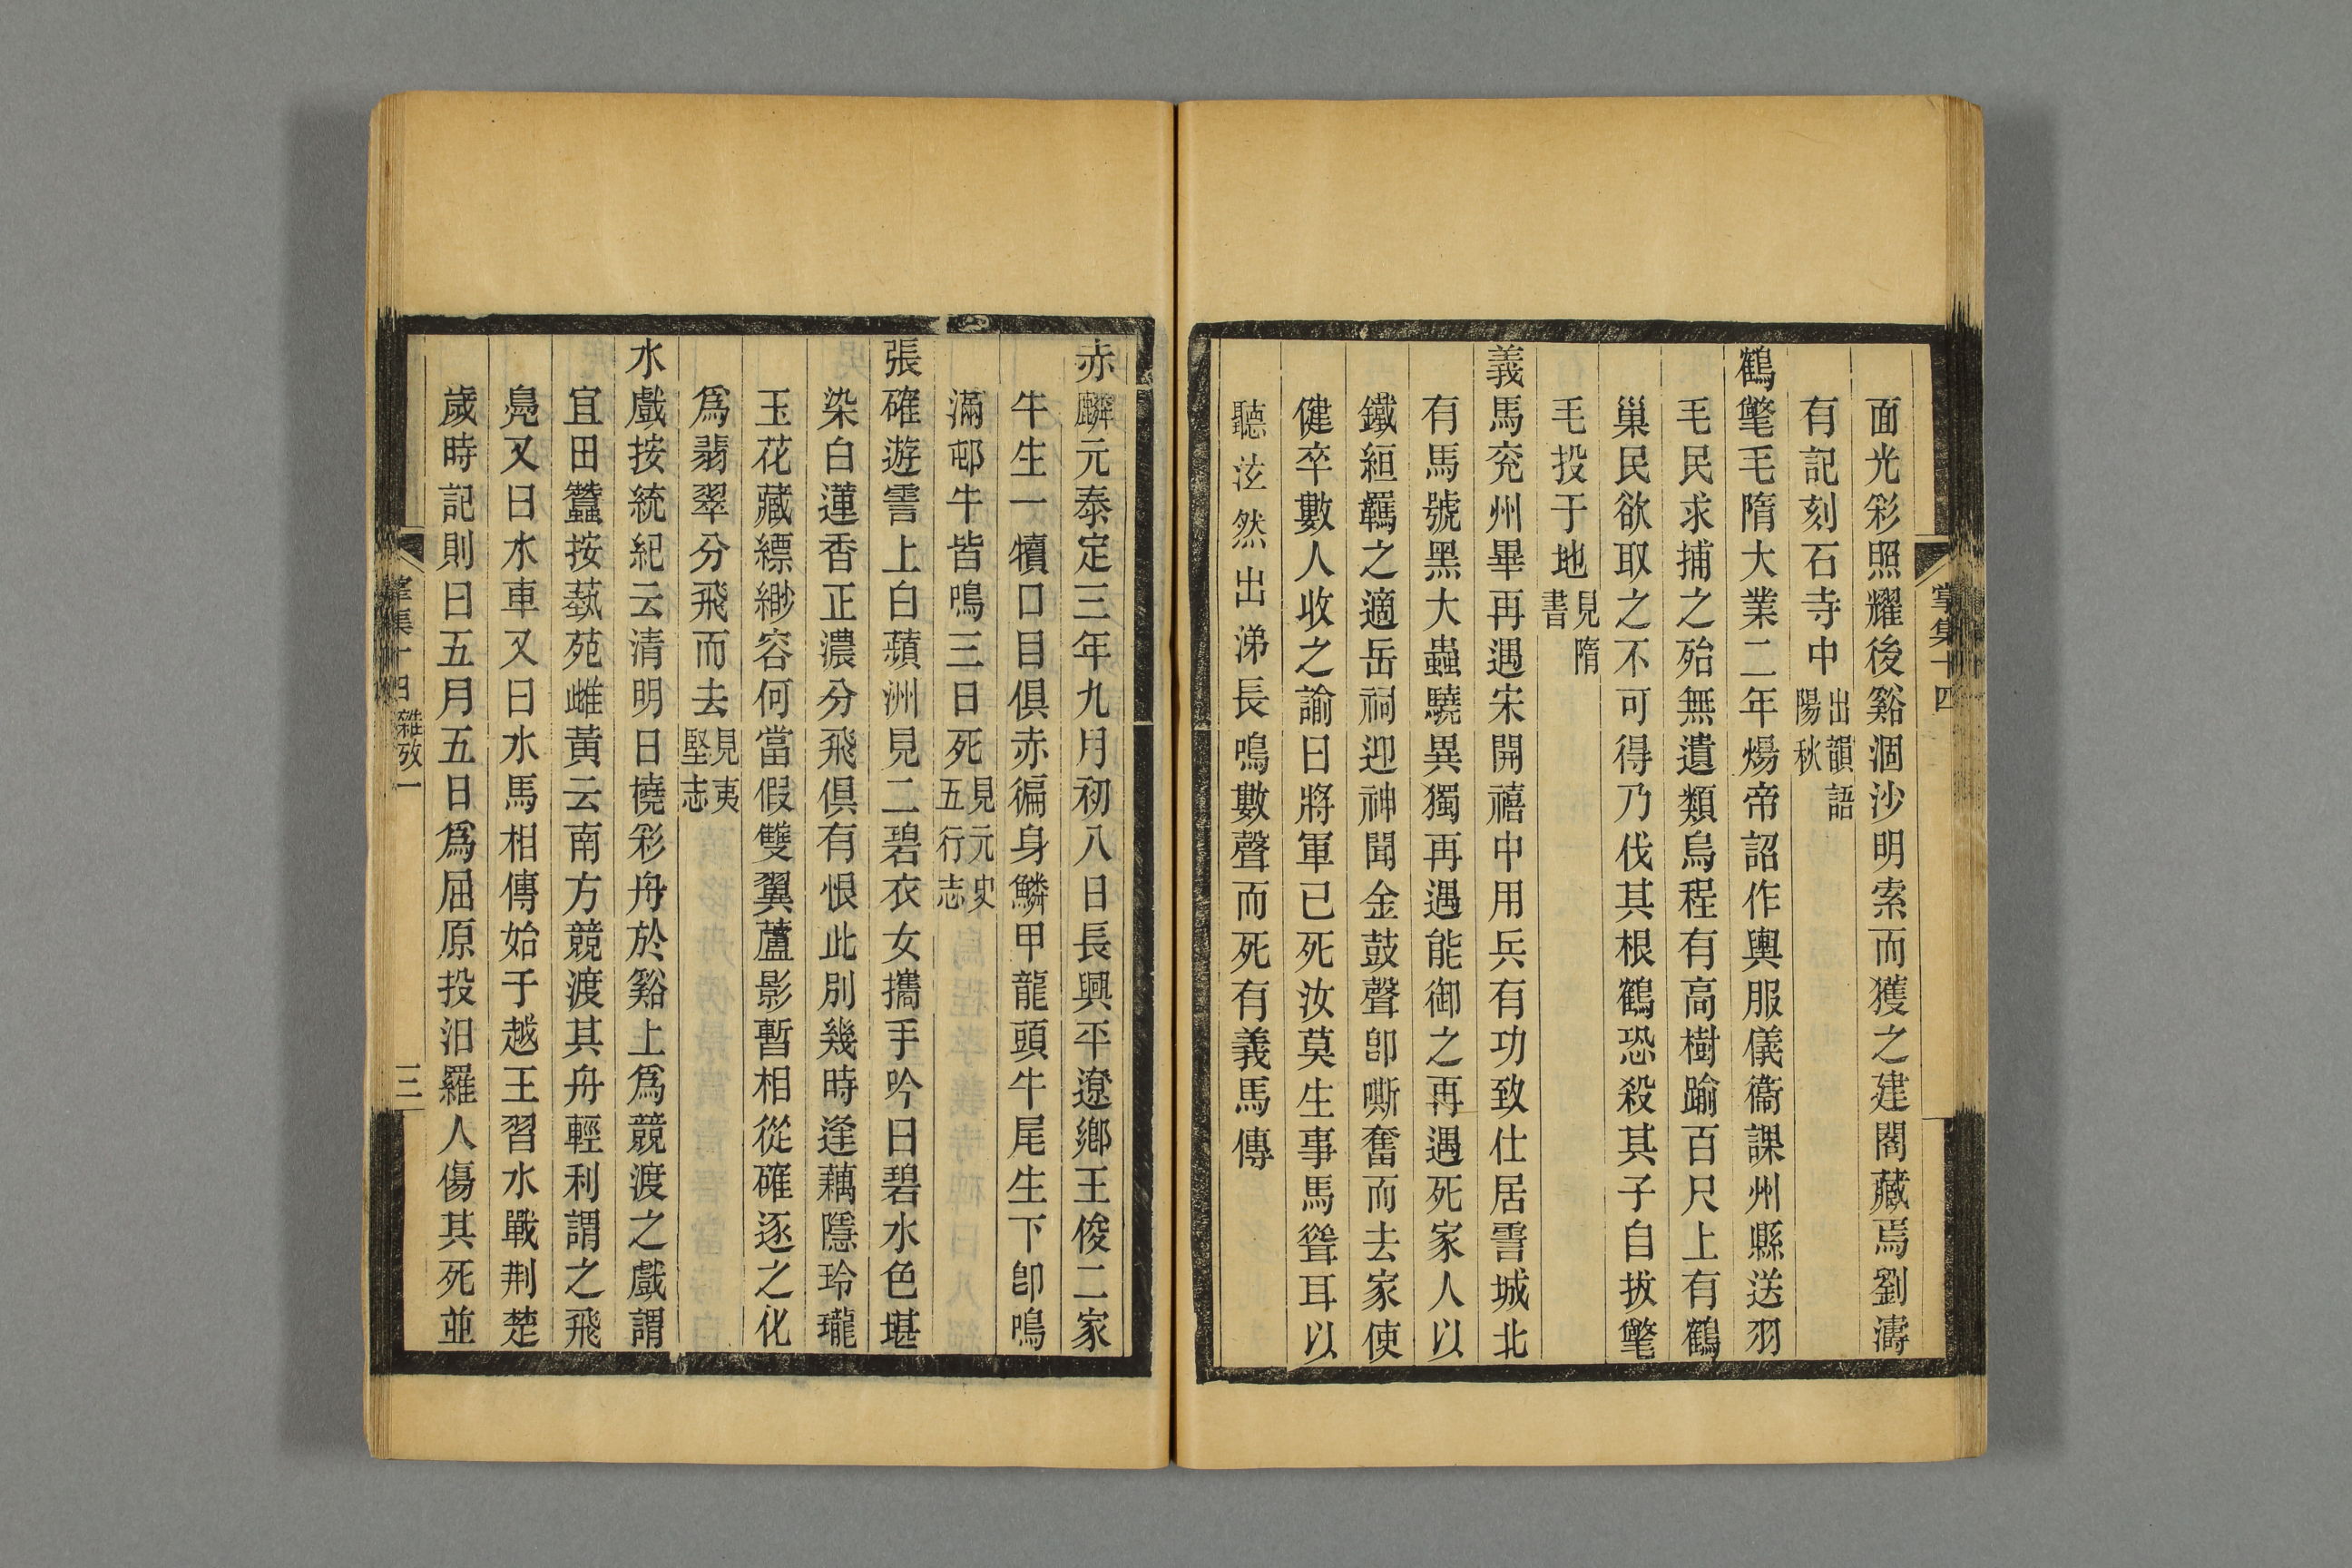 面光彩照耀後谿涸沙明索而獲之建閣藏焉劉濤
有記刻石寺中出韻語陽秋
鶴氅毛隋大業二年煬帝詔作輿服儀衞課州縣送羽
毛民求捕之殆無遺類烏程有高樹踰百尺上有鶴
巢民欲取之不可得乃伐其根鶴恐殺其子自拔氅
毛投于地見隋書
義馬兖州畢再遇宋開禧中用兵有功致仕居霅城北
有馬號黑大蟲驍異獨再遇能御之再遇死家人以
鐵絙羈之適岳祠迎神聞金鼓聲卽嘶奮而去家使
健卒數人收之諭曰將軍已死汝莫生事馬聳耳以
聽泫然出涕長鳴數聲而死有義馬傳
掌集十四
赤麟元泰定三年九月初八日長興平遼鄉王俊二家
牛生一犢口目俱赤徧身鱗甲龍頭牛尾生下卽鳴
滿邨牛皆鳴三日死見元史五行志
張確遊霅上白蘋洲見二碧衣女攜手吟曰碧水色堪
染白蓮香正濃分飛俱有恨此別幾時逢藕隱玲瓏
玉花藏縹緲容何當假雙翼蘆影暫相從確逐之化
爲翡翠分飛而去見夷堅志
水戲按統紀云清明日橈彩舟於谿上爲競渡之戲謂
宜田蠶按蓺苑雌黃云南方競渡其舟輕利謂之飛
鳧又曰水車又曰水馬相傳始于越王習水戰荆楚
歲時記則曰五月五日爲屈原投汨羅人傷其死並
雜攷一
三